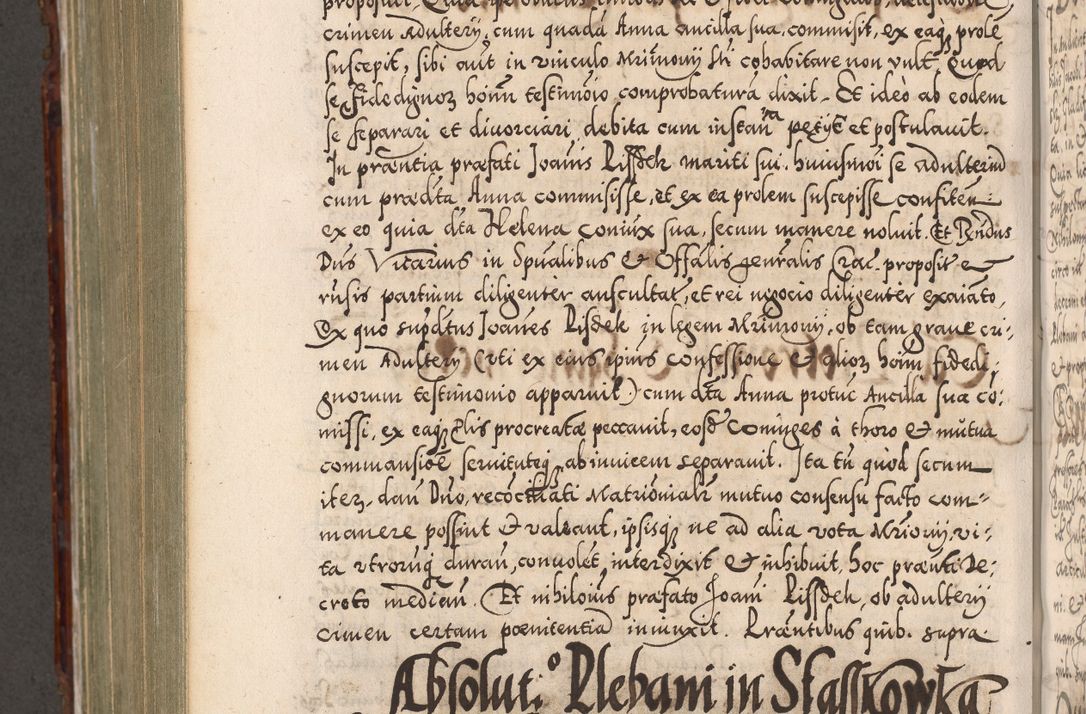 crimen Adultery, cum quadā Anna ancilla sua, commisit, ex eaq3 prole
suscepit, sibi aūt in vinculo Mr̄imonij stī cohabitare non vult. Quod
se fidedignoꝝ hoīnn testimōio comprobaturā dixit. Et ideò ab eodem
se separari et divorciari debita cum instan͞tia petijt et postulavit.
In præn̄tia præfati Joān̄is Pissdek mariti sui, huiusmōi se adulteriū
cum præd̄ta Anna commisisse, et ex ea prolem suscepisse confiten̄
ex eo quia d̄ta Helena coniux sua, secum manere noluit. Et R̄ndus
Dn̄s Vicarius in Sp̄ualibus & Offālis gen̄ralis Crac. proposit̄
rūsis partium diligenter auscultat̄, et rei negocio diligenter exaīato,
Ex quo sup̄d̄tus Joan̄es Pisdek in legem Mr̄imonij, ob tam grave cri-
men Adultery (vti ex eius ip̄ius confessione & alioꝝ hoīm fidedi-
gnorum testimonio apparuit) cum d̄ta Anna protūc Ancilla sua cō-
missi, ex eaq3 p̄lis procreatæ peccavit, eosd̄ Coniuges à thoro & mūtua
commansiōe servitutēq3 abinvicem separavit. Ita tn̄ quod secum
iteꝝ, dan̄ Dn̄o, recōciliati Matrīonialr̄ mutuo consensu facto com-
manere possint & valeant, ipsisq3 ne ad alia vota Mr̄ionij, vi-
ta vtroruq3 duran̄, convolēt, interdixit & inhibuit, hoc præn̄ti De-
creto median̄. Et nihiloīus præfato Joan̄i Pissdek, ob adultery
crimen certam pœnitentiā iniunxit. Præn̄tibus quib. supra
Absolut.º Plebani in Stasskowka